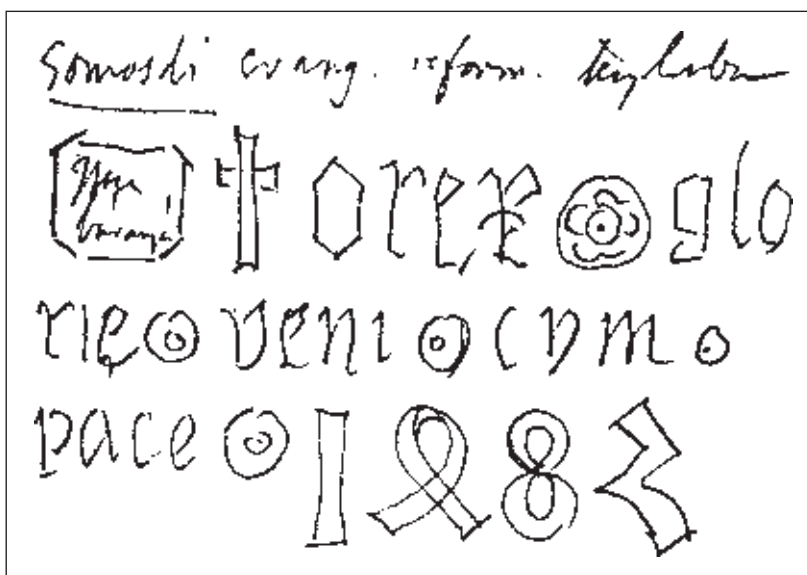 Somosdi evang. reform.
† o rex glo
rie veni cvm
pace 1483